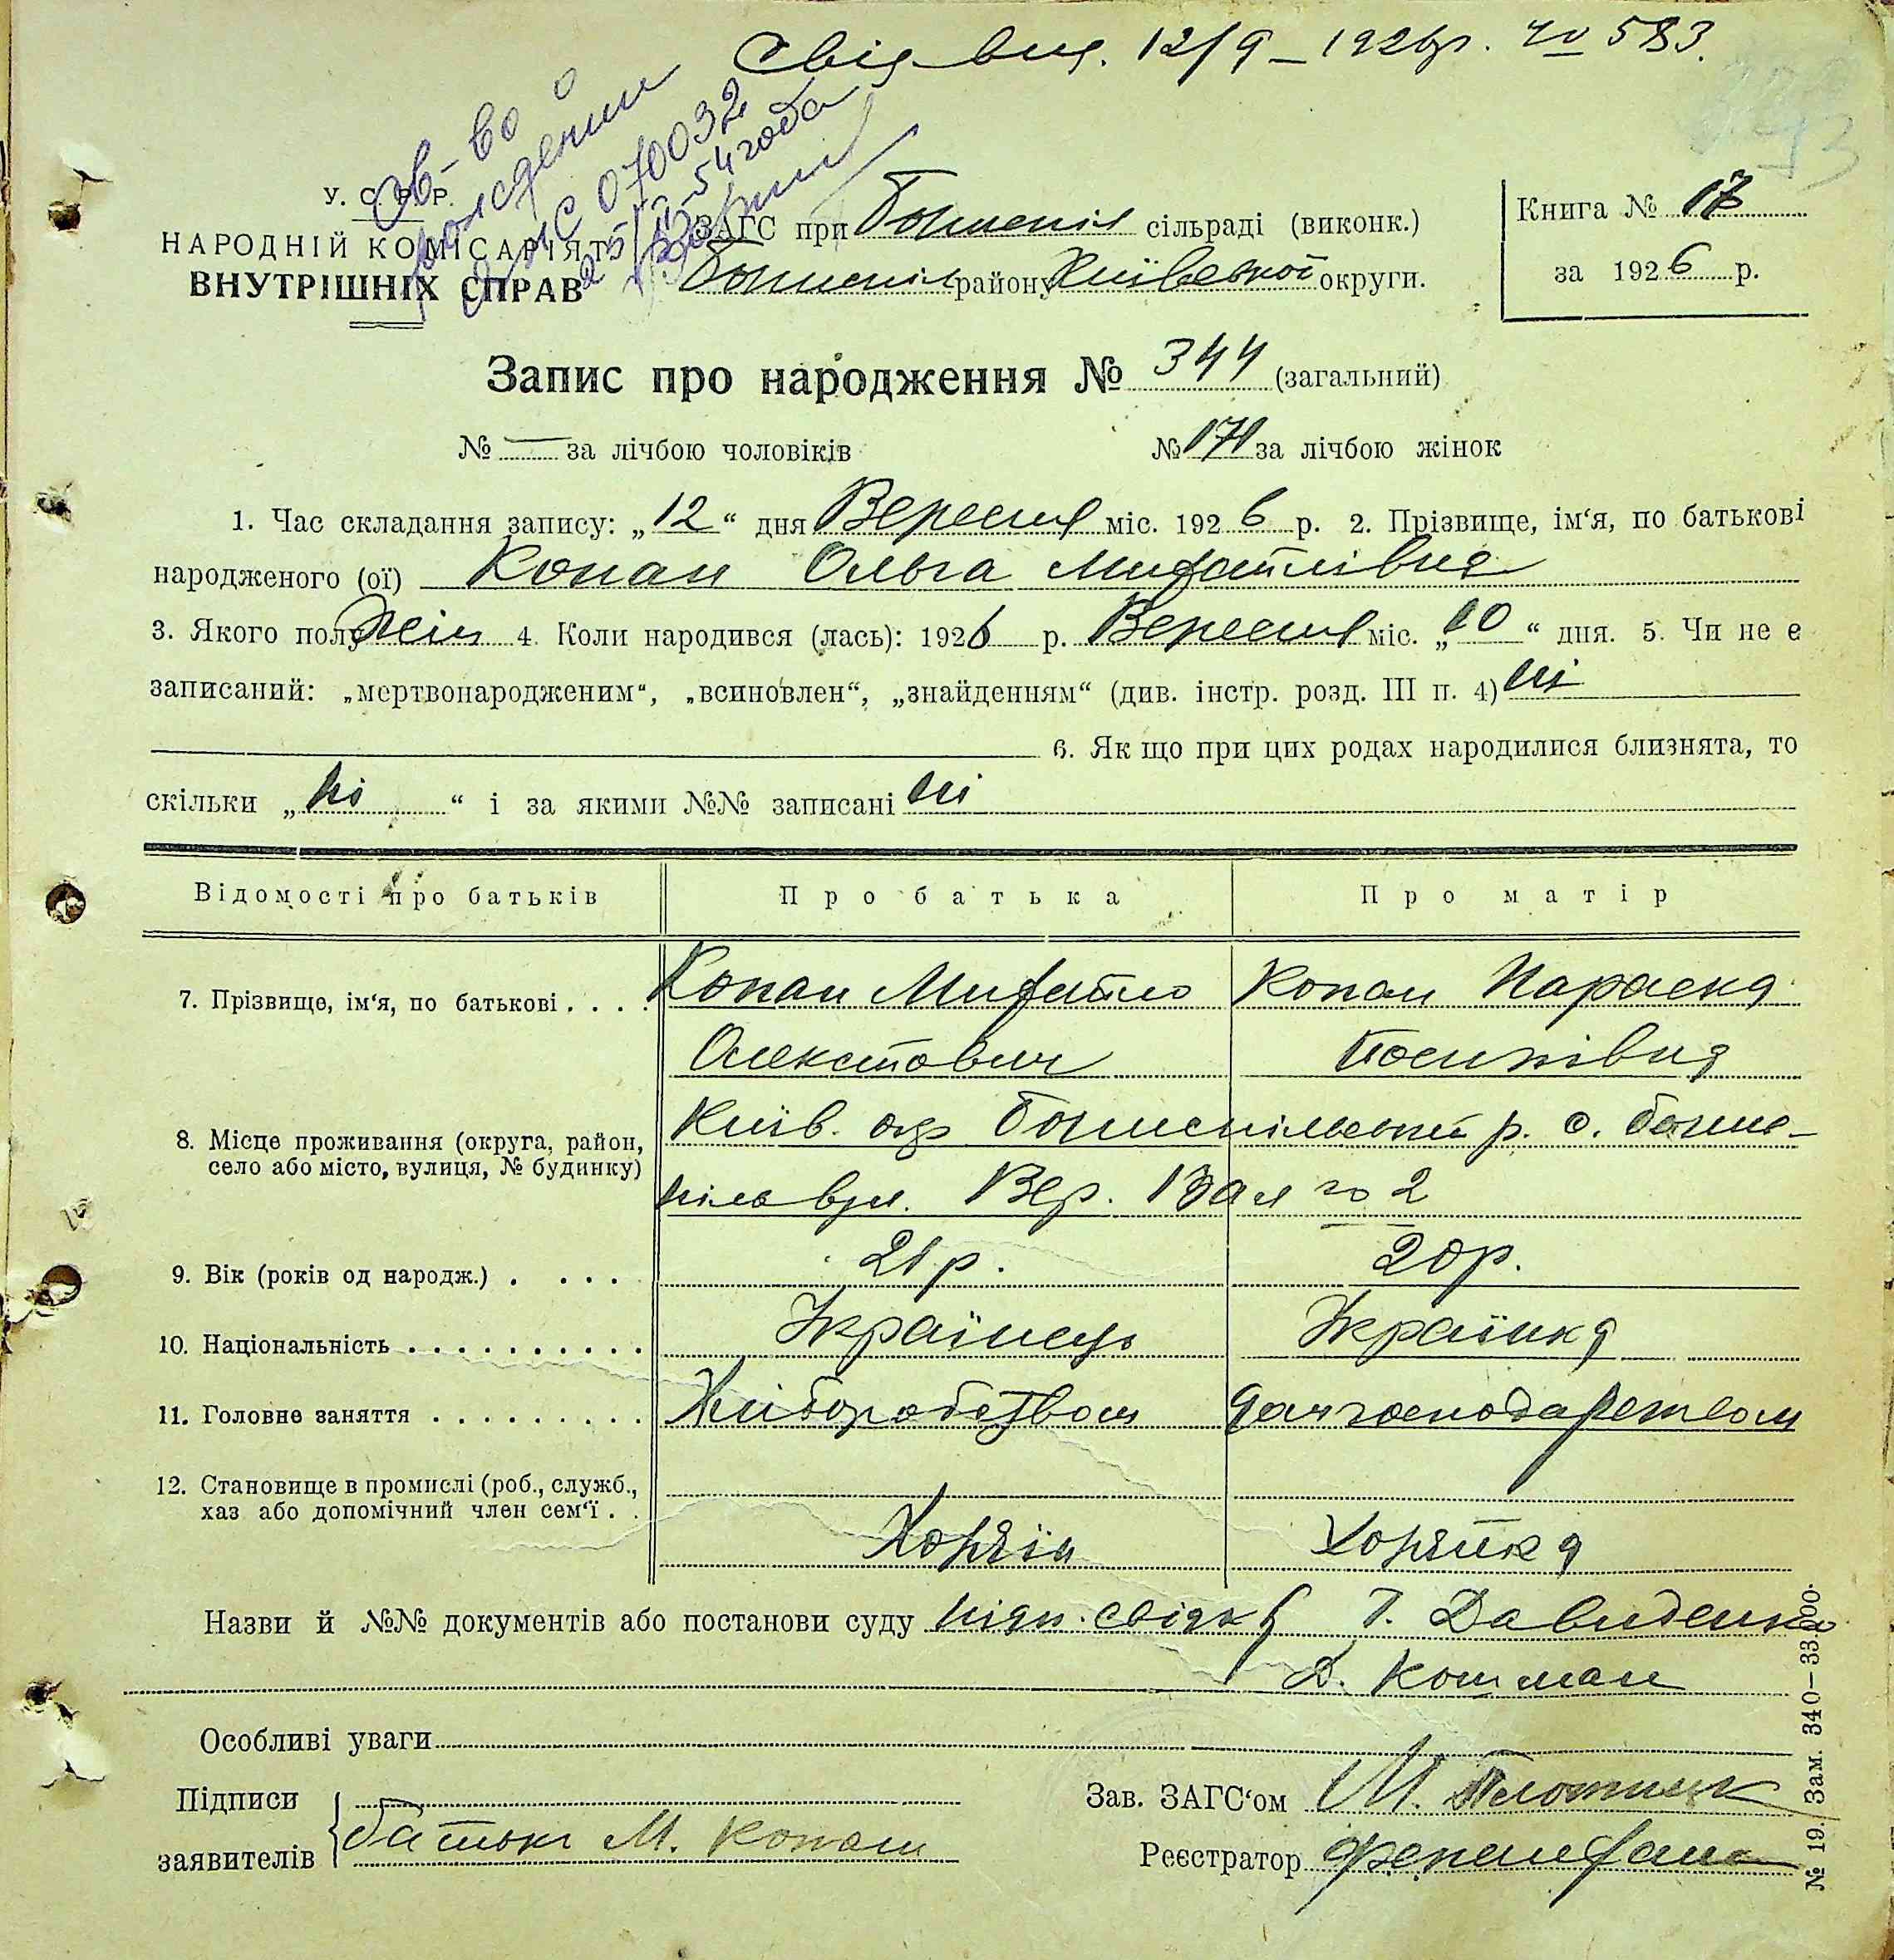 Свід вид. 12/9 – 1926р. № 583.
Св-во о
рождении
070032
54 года
У. С. Р. Р.
НАРОДНІЙ КОМІСАРІЯТ
ВНУТРІШНІХ СПРАВ
ЗАГС при Бориспіл сільраді (виконк.)
Бориспіль району Київської округи.
Книга № 17
за 1926 р.
Запис про народження № 344 (загальний)
№ — за лічбою чоловіків № 171 за лічбою жінок
1. Час складання запису: „12“ дня Вересня міс. 1926 р. 2. Прізвище, ім‘я, по батькові
народженого (ої) Копан Ольга Михайлівна
3. Якого полу жін 4. Коли народився (лась): 1926 р. Вересня міс. „10“ дня. 5. Чи не е
записаний: „мертвонародженим“, „всиновлен“, „знайденням“ (див. інстр. розд. III п. 4) ні
6. Як що при цих родах народилися близнята, то
скільки „ні“ і за якими №№ записані ні
Відомості про батьків Про батька Про матір
7. Прізвище, ім‘я, по батькові . . . . Копан Михайло Копан Параска
Олекстович Йосипівна
8. Місце проживання (округа, район, Київ. окр Бориспільський р. с. Борис-
село або місто, вулиця, № будинку) піль вул. Вер. Вал № 2
9. Вік (років од народж.) . . . . 21 р. 20 р.
10. Національність . . . . . . . . . . Українець Українка
11. Головне заняття . . . . . . . . . Хліборобством
12. Становище в промислі (роб., служб.,
хаз або допомічний член сем‘ї . . Хозяїн Хозяйка
Назви й №№ документів або постанови суду підп. свідк Т. Давиденко
Д. Кошман
Особливі уваги
Підписи Зав. ЗАГС‘ом М. Плотник
заявителів батько М. Копан Реєстратор
№ 19. Зам. 340—33.000.